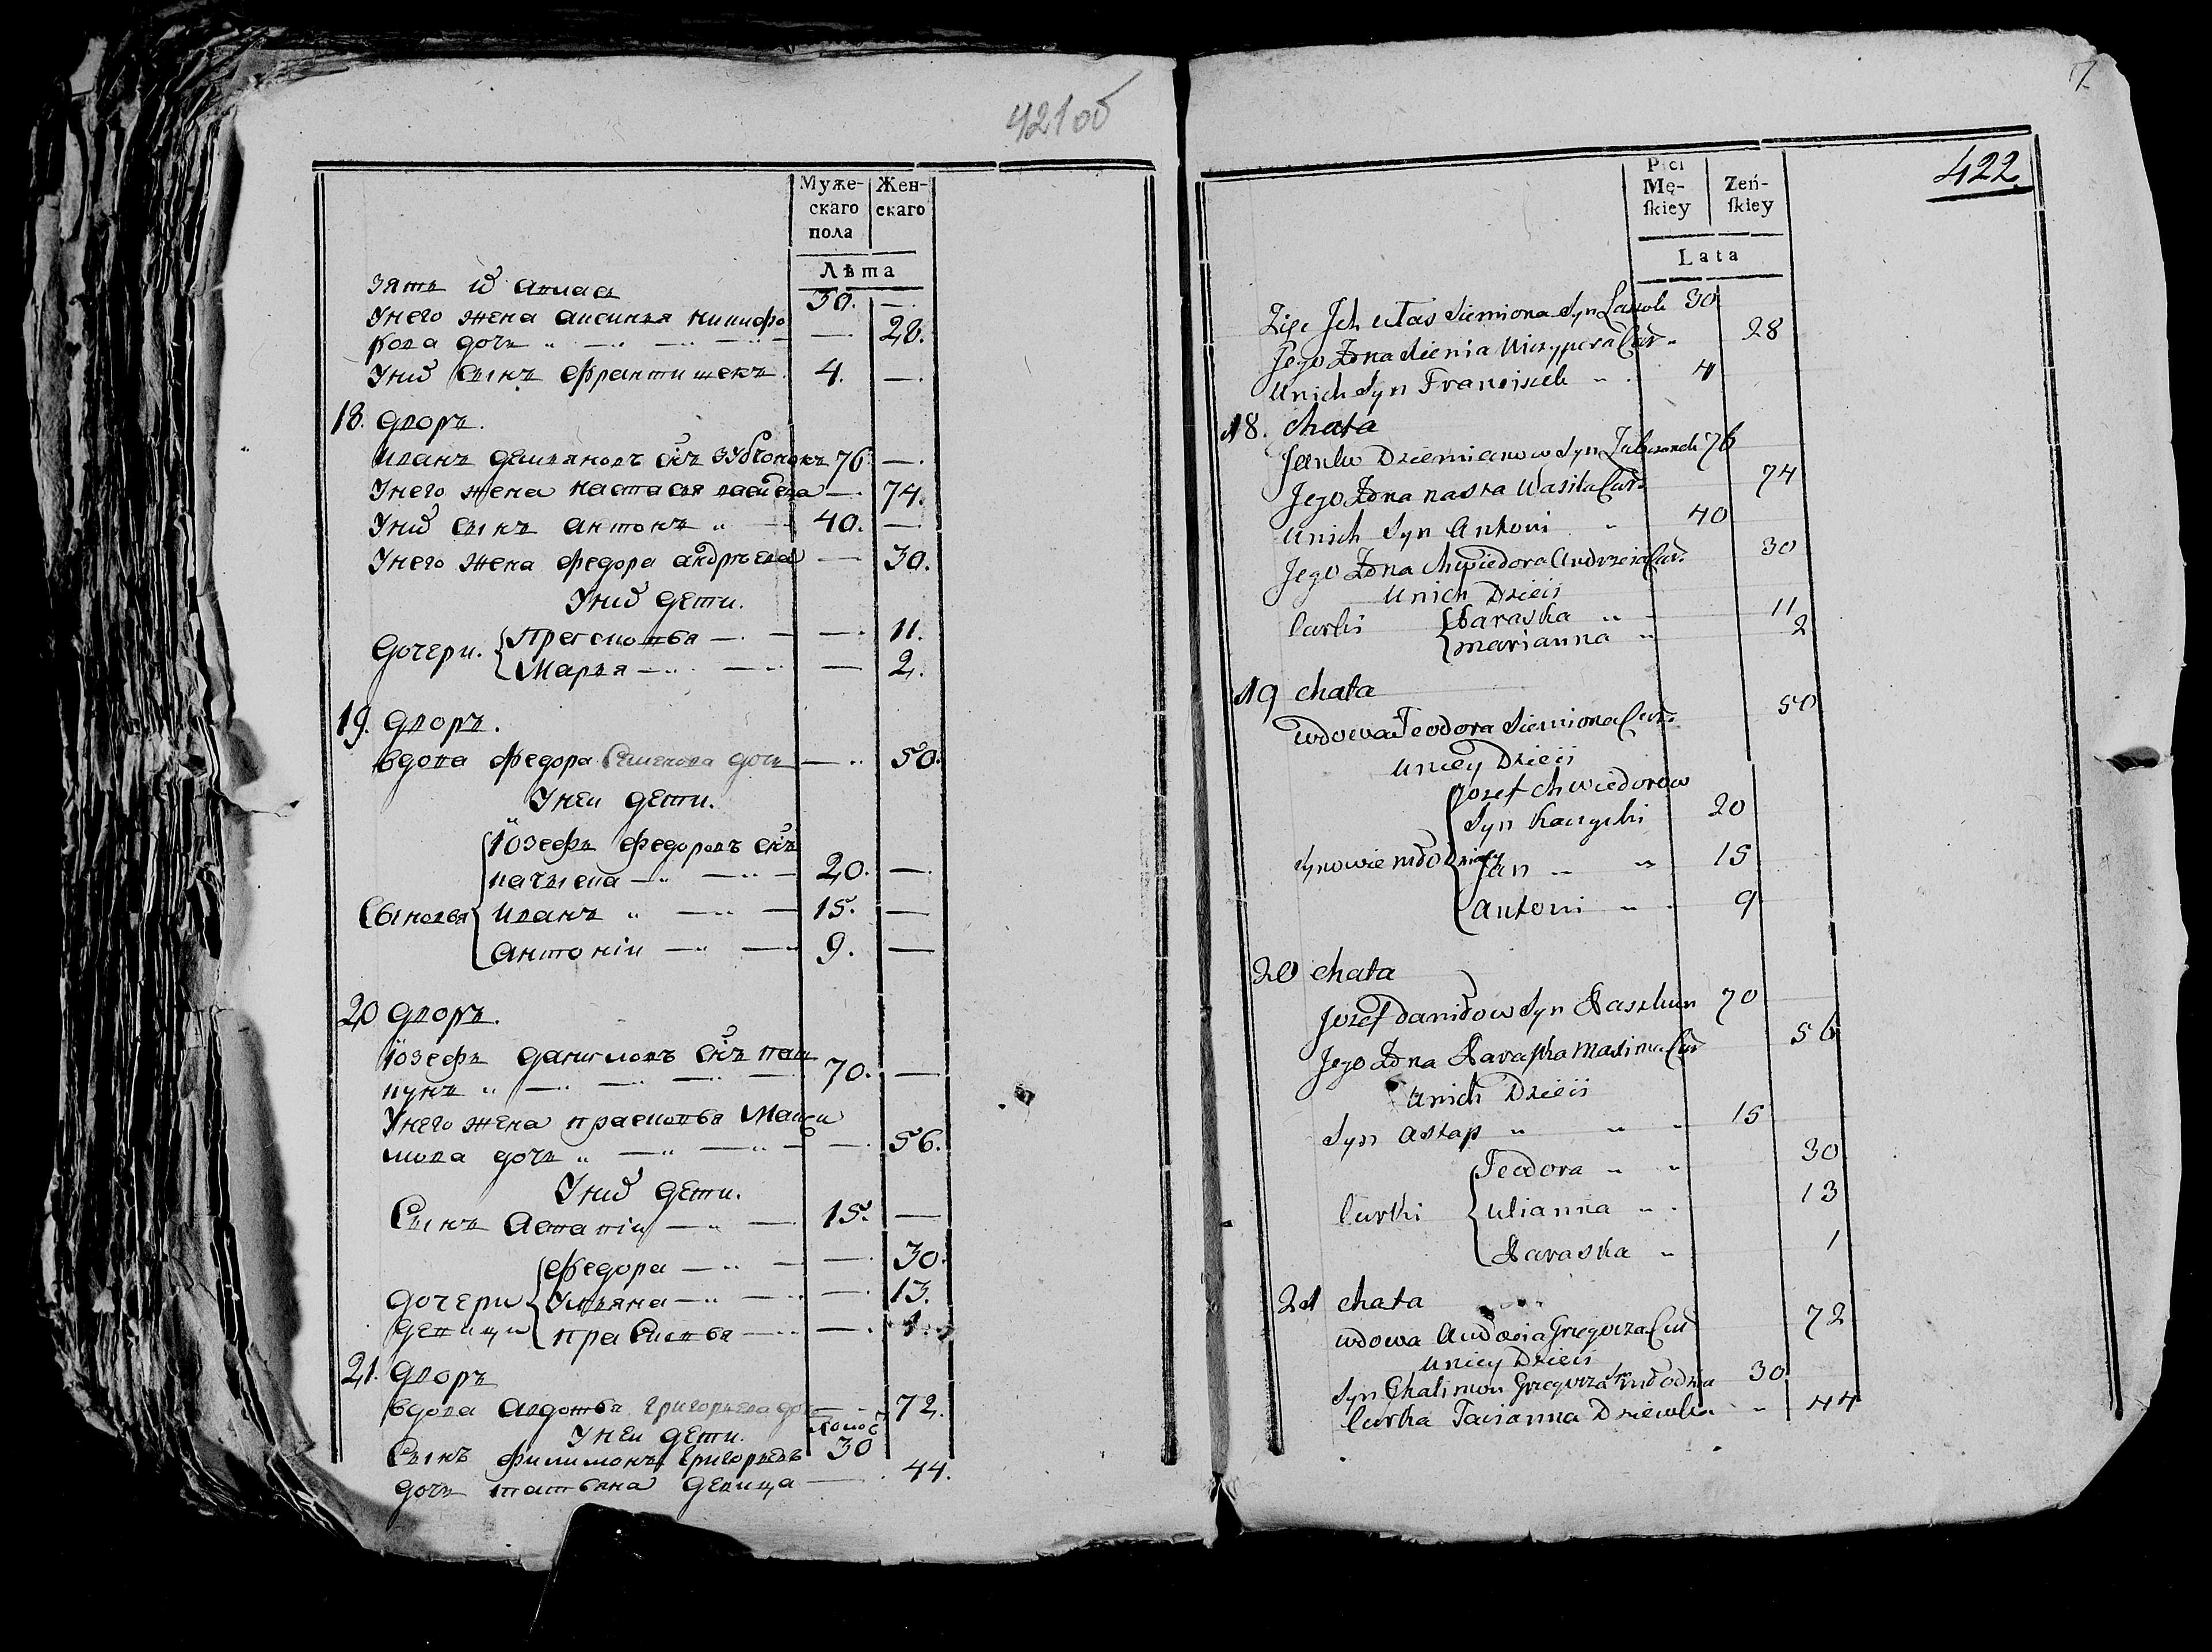 421 об
Муже-
скаго
пола
Жен-
скаго
Лѣта
зять и͞х
30. —
У него жена аксинья никифо
рова дочь — 28.
У них сынъ франтишекъ 4. —
18. дворъ.
иванъ демьяновъ снъ зубчонокъ 76 —
У него жена настасья васиева — 74.
У них сынъ антонъ 40. —
У него жена федора андрѣева — 30.
У них дети.
Дочери. Пресковья — 11.
Марья — 2.
19. дворъ.
вдова федора Семенова дочь — 50.
У неи дети.
Іозефъ федоровъ снъ
20. —
Сыновья иванъ 15. —
антоніи 9. —
20 дворъ.
Іозефъ даниловъ снъ паш
кунъ 70. —
У него жена прасковья Макси
мова дочь — 56.
У них дети.
Сынъ Астапіи 15. —
федора — 30.
дочери Ульяна — 13.
девицы прасковья — 1.
21. дворъ
вдова авдотья григорьева доч — 72.
У неи дети. холос
Сынъ филимонъ григорьевъ 30
дочь татьяна девица — 44.
7
422
Płci
Mę-
ſkiey
Żeń-
ſkiey
Lata
Zięć Ich Siemiona Syn 30
Jego Żona 28
U nich Syn Franciszek 4
18. chata
Janko Dziemianow Syn Zubczonek 76
Jego Żona Nasta Wasila Cur 74
U nich Syn Antoni 40
Jego Żona Chwiedora Andrzeia Cur 30
U nich Dzieci
Curki Paraska 11
Marianna 2
19 chata
wdowa Teodora Siemiona Cur 50
U niey Dzieci
Jozef Chwiedorow
Syn 20
Synowie Jan 15
Antoni 9
20 chata
Jozef Daniłow Syn Paszkun 70
Jego Żona Paraska Maxima Cur 56
U nich Dzieci
Syn Astap 15
Teodora 30
Curki Ulianna 13
Paraska 1
21 chata
wdowa Audocia Gregorza Cur 72
U niey Dzieci
Syn Chalimon Gregorza 30
Curka Tacianna Dziewka 44